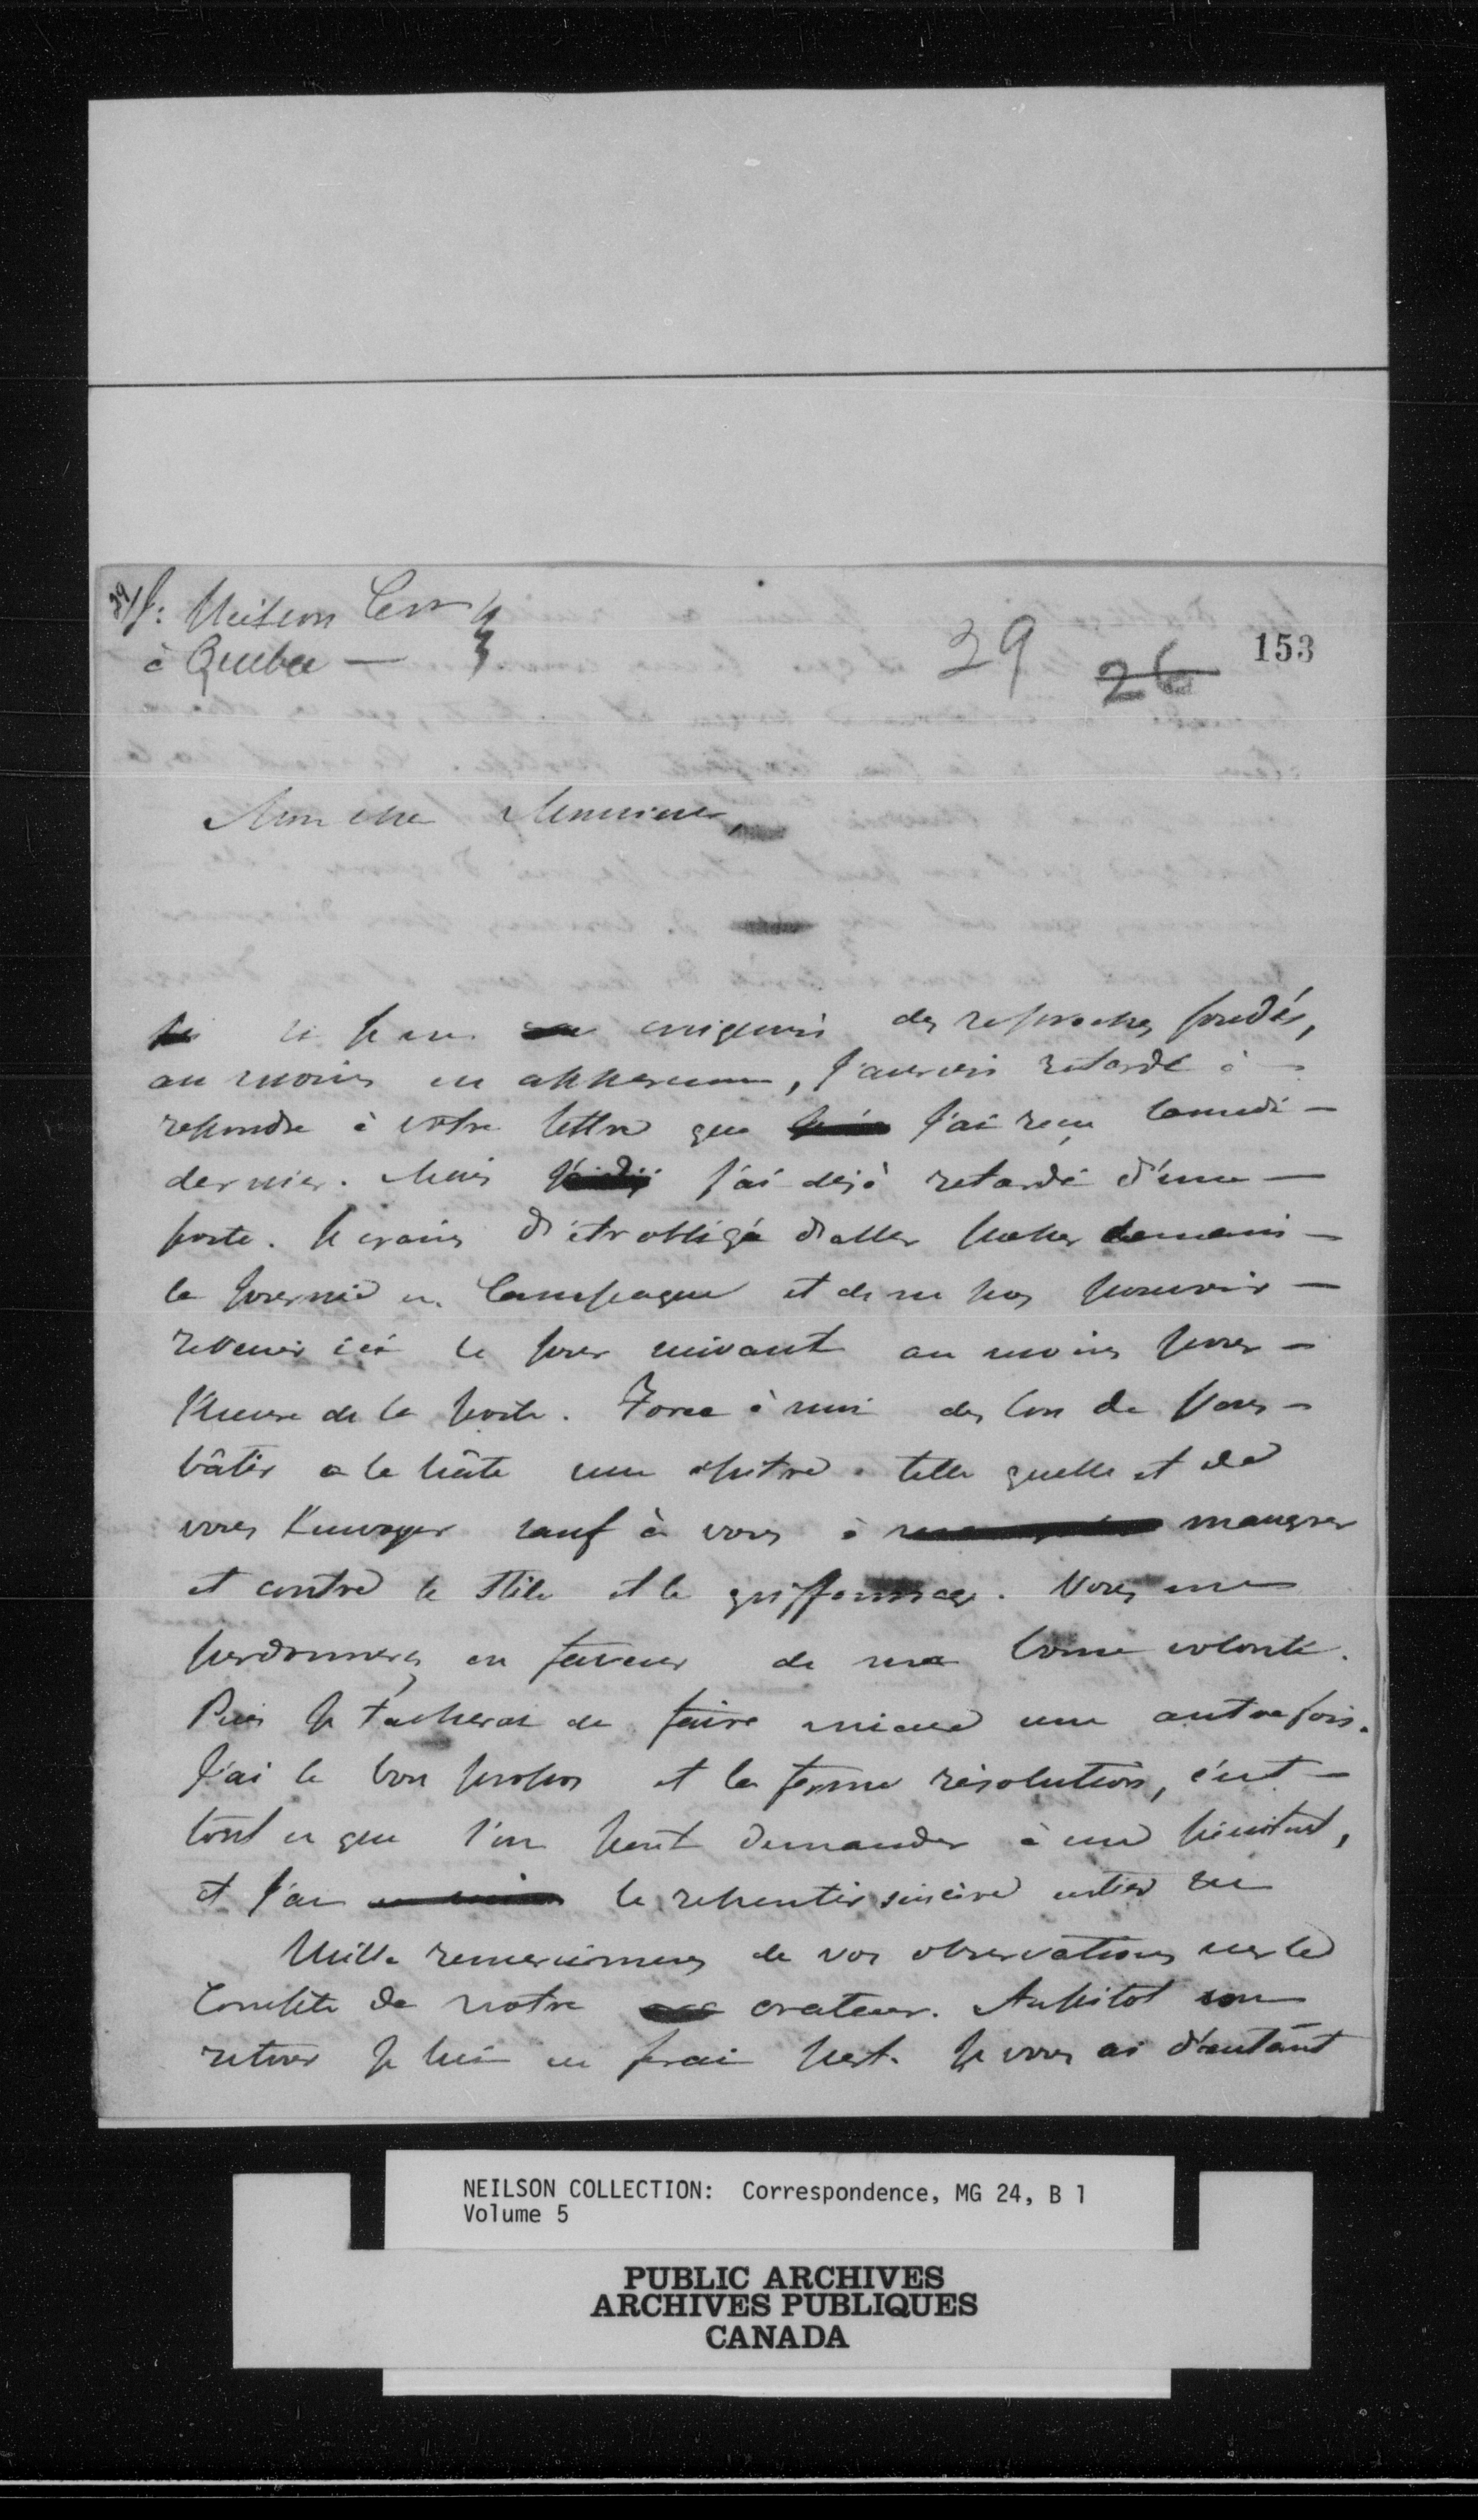 J: Neilson Ecr
à Quebec —
39
26
153
Mon cher Monsieur,
si je ne craignois des reproches fondés,
au moins en apparence, j'aurois retardé à —
repondre à votre lettre que j'ai reçu samedi —
dernier. Mais j'ai dejà retardé d'une —
poste. Je crains d'être obligé d'aller passer demain —
la journée en Campagne et de ne pas pouvoir —
revenir ici le jour suivant au moins pour —
l'heure de la poste. Force à moi des lors de vous —
bâtir a la hâte une epitre telle quelle et de
vous l'envoyer sauf à vous à maugréer
et contre le stile et le griffonnage. Vous me
pardonnerez en faveur de ma bonne volonté.
Puis je tacherai de faire mieux une autre fois.
J'ai le bon propos et la ferme résolution, c'est —
tout ce que l'on peut demander à un pénitent,
et j'ai le repentir sincère entier
Mille remercimens de vos observations sur le
Compte de notre orateur. Aussitot son
retour je lui en ferai part. Je vous ai d'autant
NEILSON COLLECTION: Correspondence, MG 24, B 1
Volume 5
PUBLIC ARCHIVES
ARCHIVES PUBLIQUES
CANADA